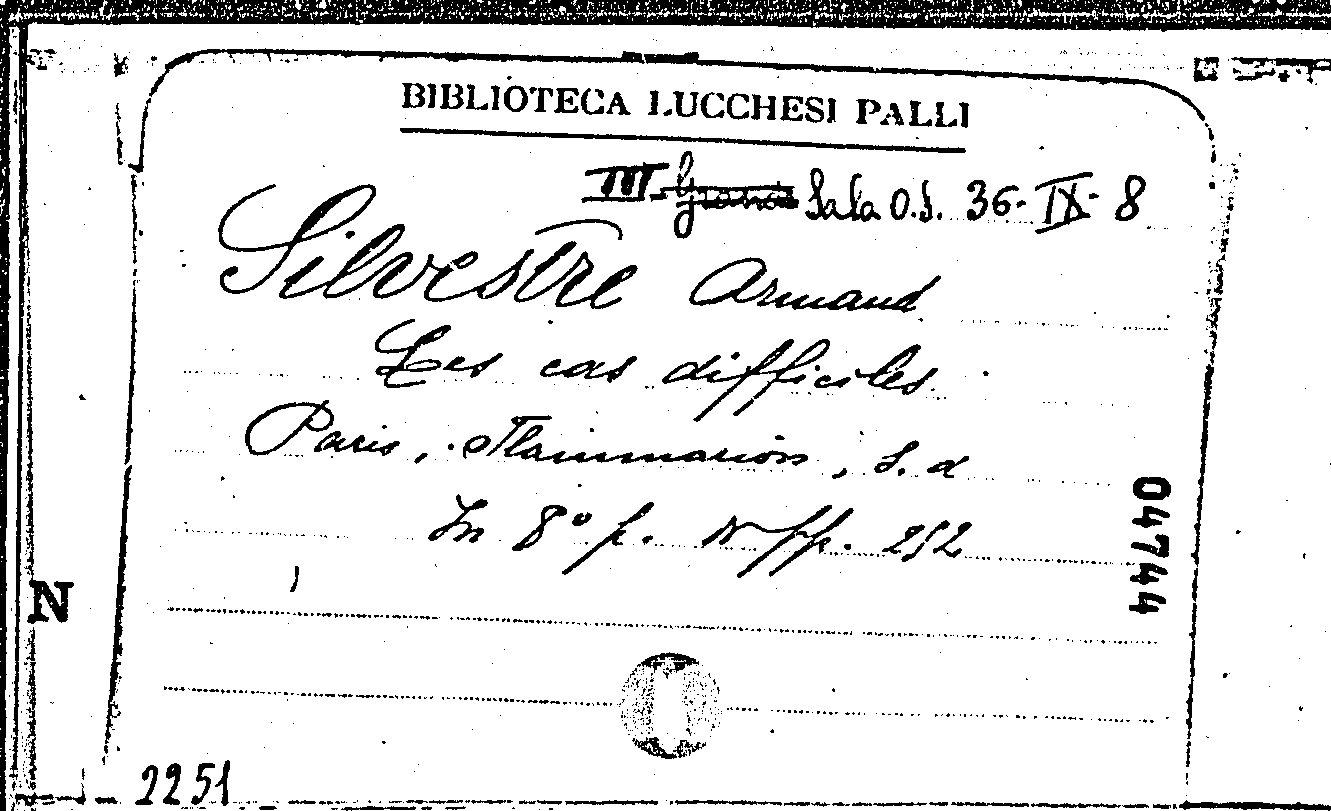 BIBLIOTECA LUCCHESI PALLI
III Sala O.S. 36-IX-8
Silvestre Armand
Les cas difficiles
Paris, Flammarion, s. d
In 8° p. pp. 252
04744
N
2251